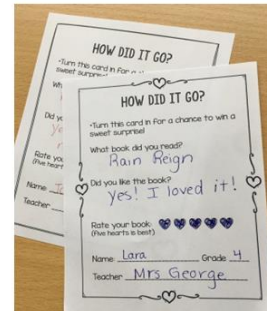 HOW DID IT GO?
•Turn this card in for a
sweet surprise!
Rate your
(Five hearts
Name
Teacher
HOW DID IT GO?
•Turn this card in for a chance to win a
sweet surprise!
What book did you read?
Rain Reign
Did you like the book?
Yes! I loved it!
Rate your book:
(Five hearts is best)
Name: Lara Grade 4
Teacher Mrs George